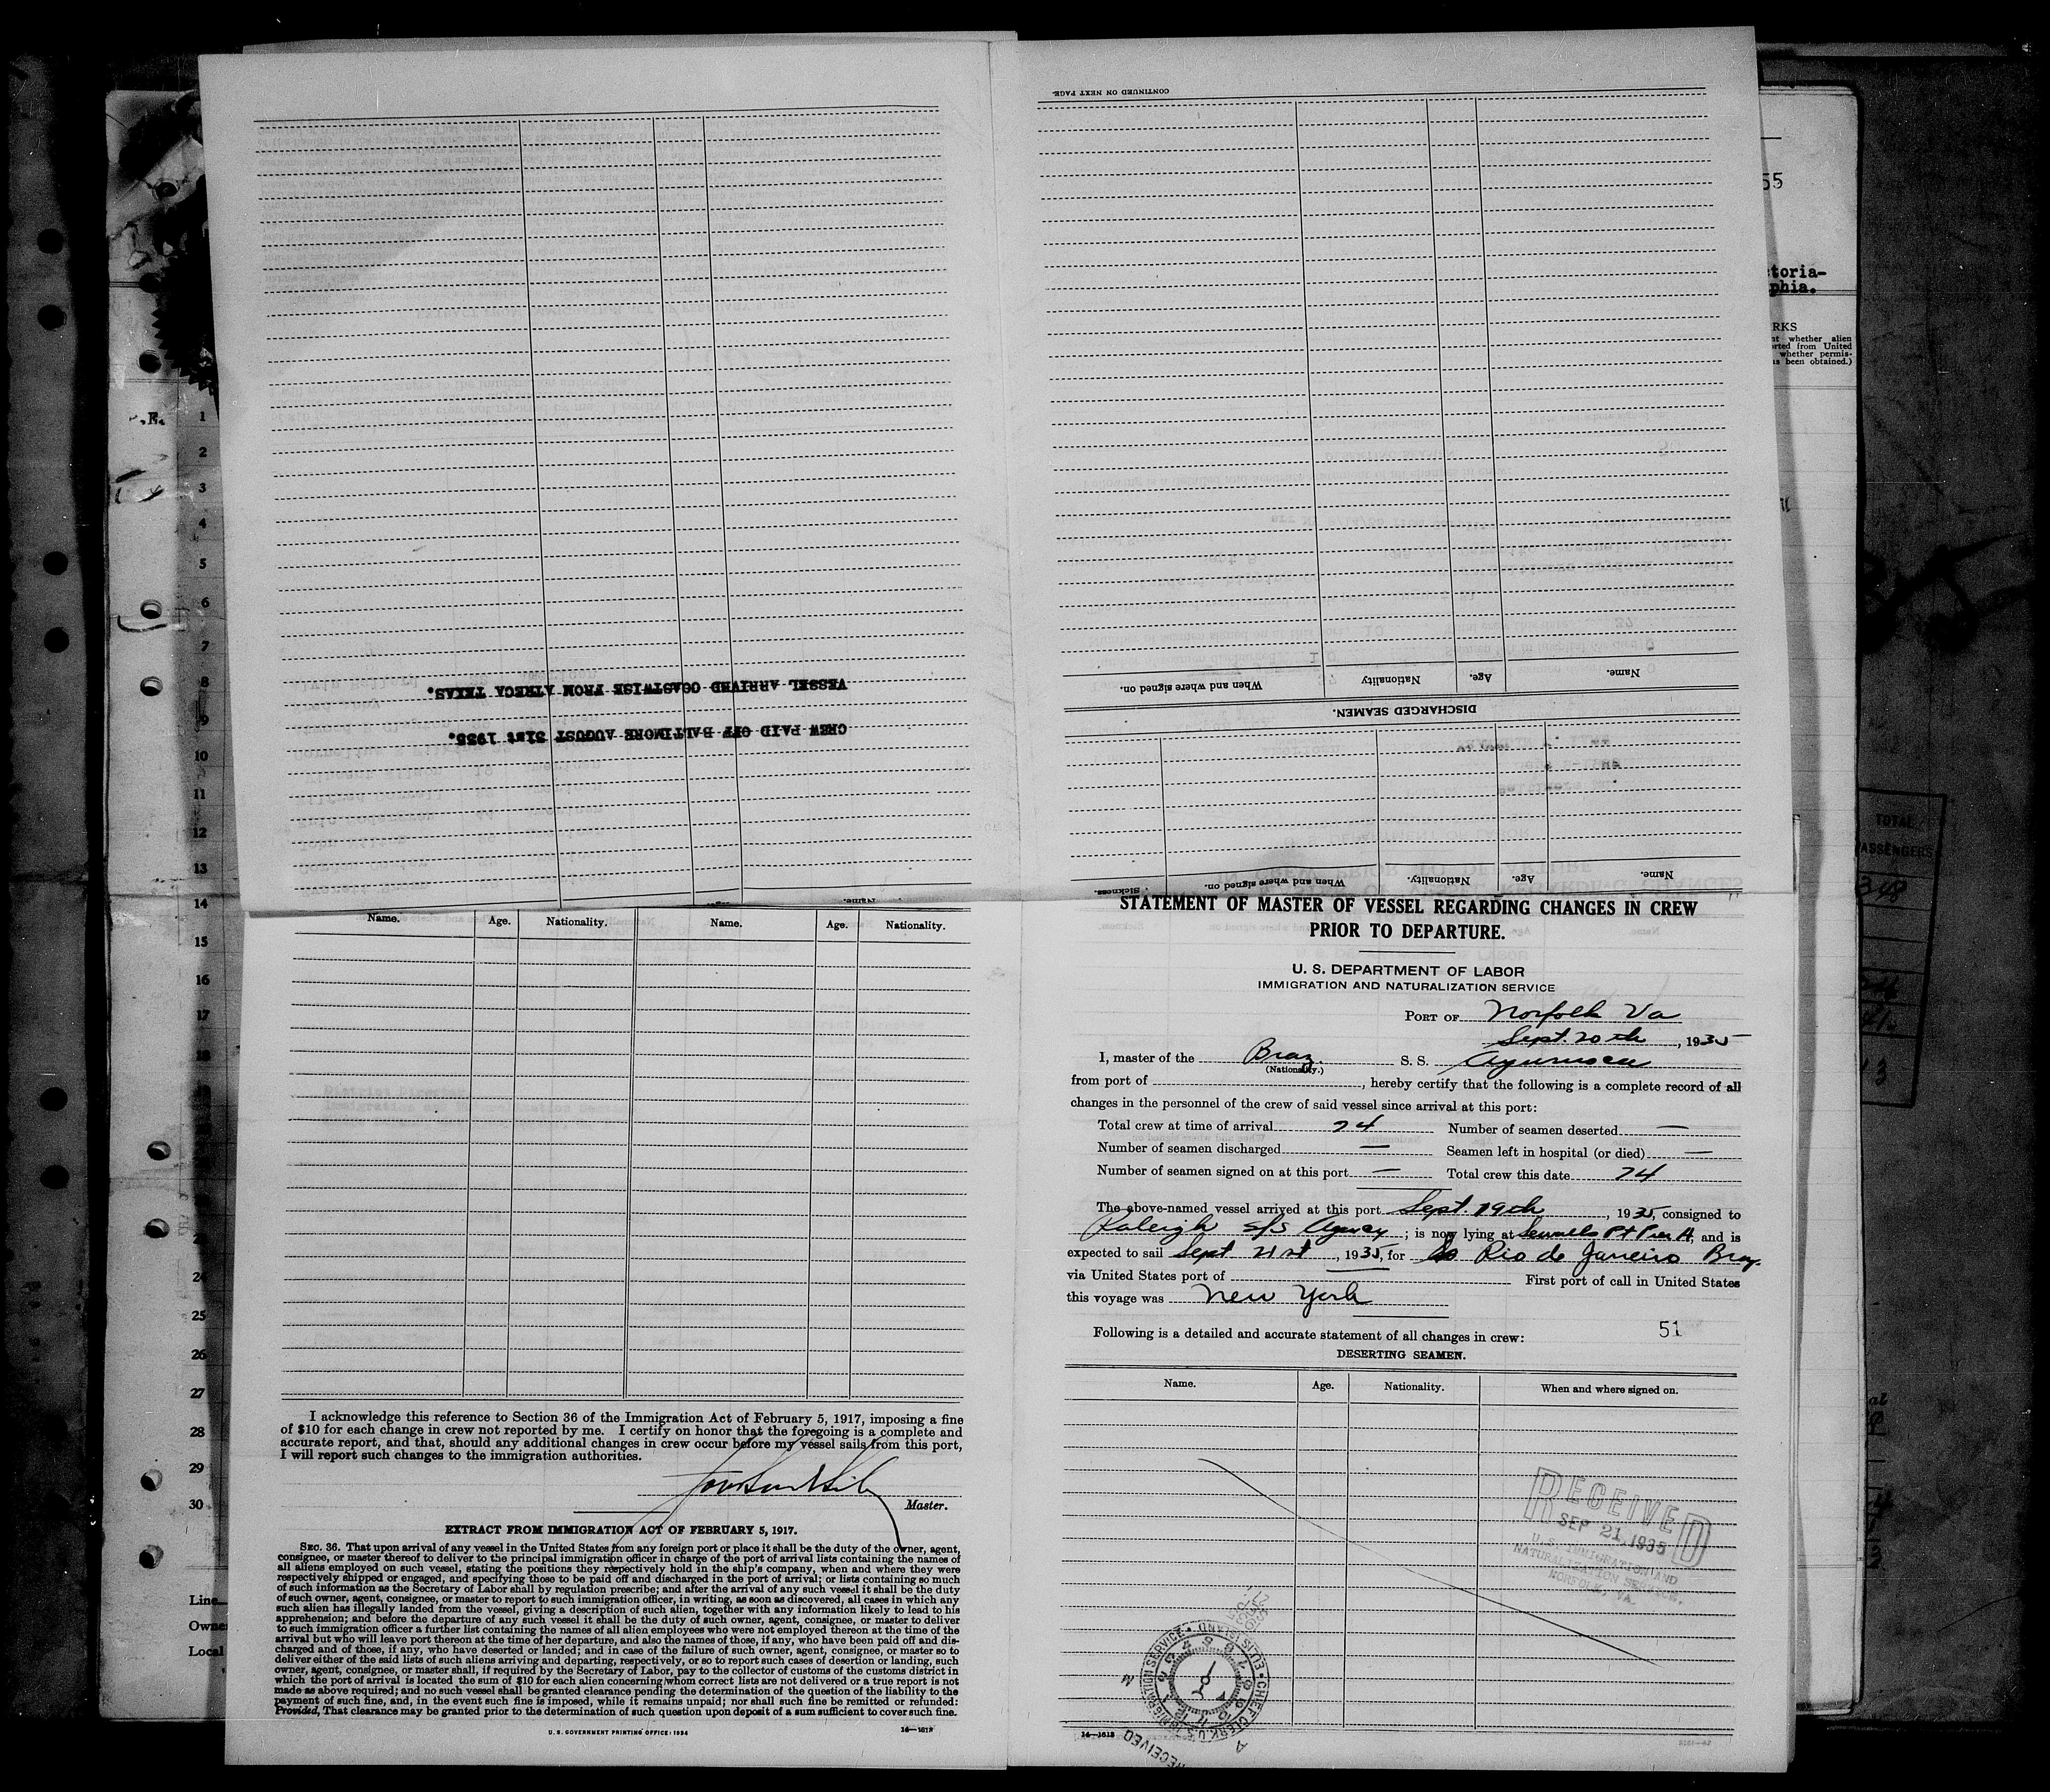 CONTINUED ON NEXT PAGE.
VESSEL ARRIVED COASTWISE FROM ATRECA TEXAS.
CREW PAID OFF BALTIMORE AUGUST 31st 1935.
When and where signed on.
Nationality
Age.
Name.
DISCHARGED SEAMEN.
Sickness.
When and where signed on.
Nationality.
Age.
Name.
55
toria-
phia.
RKS
nt whether alien
orted from United
whether permis-
s been obtained.)
1
2
3
4
5
6
7
8
9
10
11
12
13
14
15
16
17
18
24
25
26
27
28
29
30
Line
Owne
Local
TOTAL
PASSENGERS
348
13
Name.
Age.
Nationality.
Name.
Age.
Nationality.
I acknowledge this reference to Section 36 of the Immigration Act of February 5, 1917, imposing a fine
of $10 for each change in crew not reported by me. I certify on honor that the foregoing is a complete and
accurate report, and that, should any additional changes in crew occur before my vessel sails from this port,
I will report such changes to the immigration authorities.
Master.
EXTRACT FROM IMMIGRATION ACT OF FEBRUARY 5, 1917.
SEC. 36. That upon arrival of any vessel in the United States from any foreign port or place it shall be the duty of the owner, agent,
consignee, or master thereof to deliver to the principal immigration officer in charge of the port of arrival lists containing the names of
all aliens employed on such vessel, stating the positions they respectively hold in the ship's company, when and where they were
respectively shipped or engaged, and specifying those to be paid off and discharged in the port of arrival; or lists containing so much
of such information as the Secretary of Labor shall by regulation prescribe; and after the arrival of any such vessel it shall be the duty
of such owner, agent, consignee, or master to report to such immigration officer, in writing, as soon as discovered, all cases in which any
such alien has illegally landed from the vessel, giving a description of such alien, together with any information likely to lead to his
apprehension; and before the departure of any such vessel it shall be the duty of such owner, agent, consignee, or master to deliver
to such immigration officer a further list containing the names of all alien employees who were not employed thereon at the time of the
arrival but who will leave port thereon at the time of her departure, and also the names of those, if any, who have been paid off and dis-
charged and of those, if any, who have deserted or landed; and in case of the failure of such owner, agent, consignee, or master so to
deliver either of the said lists of such aliens arriving and departing, respectively, or so to report such cases of desertion or landing, such
owner, agent, consignee, or master shall, if required by the Secretary of Labor, pay to the collector of customs of the customs district in
which the port of arrival is located the sum of $10 for each alien concerning whom correct lists are not delivered or a true report is not
made as above required; and no such vessel shall be granted clearance pending the determination of the question of the liability to the
payment of such fine, and, in the event such fine is imposed, while it remains unpaid; nor shall such fine be remitted or refunded:
Provided, That clearance may be granted prior to the determination of such question upon deposit of a sum sufficient to cover such fine.
U. S. GOVERNMENT PRINTING OFFICE: 1934
14—1613
STATEMENT OF MASTER OF VESSEL REGARDING CHANGES IN CREW
PRIOR TO DEPARTURE.
U. S. DEPARTMENT OF LABOR
IMMIGRATION AND NATURALIZATION SERVICE
PORT OF Norfolk Va
Sept. 20th, 1935
I, master of the Braz. S. S. Ayuruoca
(Nationality.)
from port of , hereby certify that the following is a complete record of all
changes in the personnel of the crew of said vessel since arrival at this port:
Total crew at time of arrival 74 Number of seamen deserted —
Number of seamen discharged — Seamen left in hospital (or died) —
Number of seamen signed on at this port — Total crew this date 74
The above-named vessel arrived at this port Sept. 19th, 1935, consigned to
Raleigh S/S Agency; is now lying at Sewells Pt Pier A, and is
expected to sail Sept 21st, 1935, for Rio de Janeiro Braz.
via United States port of First port of call in United States
this voyage was New York
Following is a detailed and accurate statement of all changes in crew: 51
DESERTING SEAMEN.
Name.
Age.
Nationality.
When and where signed on.
RECEIVED
SEP 21, 1935
U. S. IMMIGRATION AND
NATURALIZATION SERVICE,
NORFOLK, VA.
CHIEF CLERK U. S. IMMIGRATION SERVICE • ELLIS ISLAND
RECEIVED
14—1613